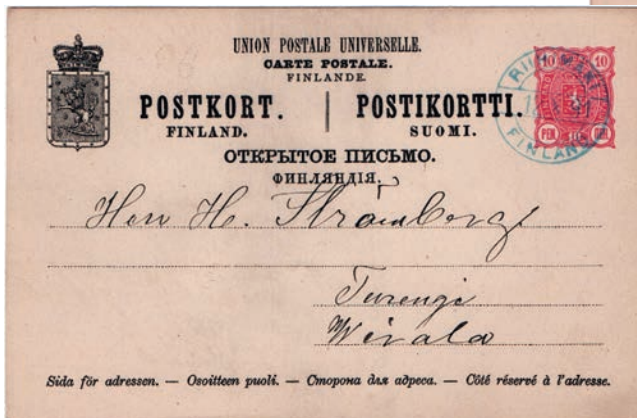 UNION POSTALE UNIVERSELLE.
CARTE POSTALE.
FINLANDE.
POSTKORT. | POSTIKORTTI.
FINLAND. SUOMI.
ОТКРЫТОЕ ПИСЬМО.
ФИНЛЯНДІЯ.
10 10
PEN PEN
FINLAND
Herr H. Strömberg
Turengi
Wirala
Sida för adressen. — Osoitteen puoli. — Сторона для адреса. — Côté réservé à l'adresse.